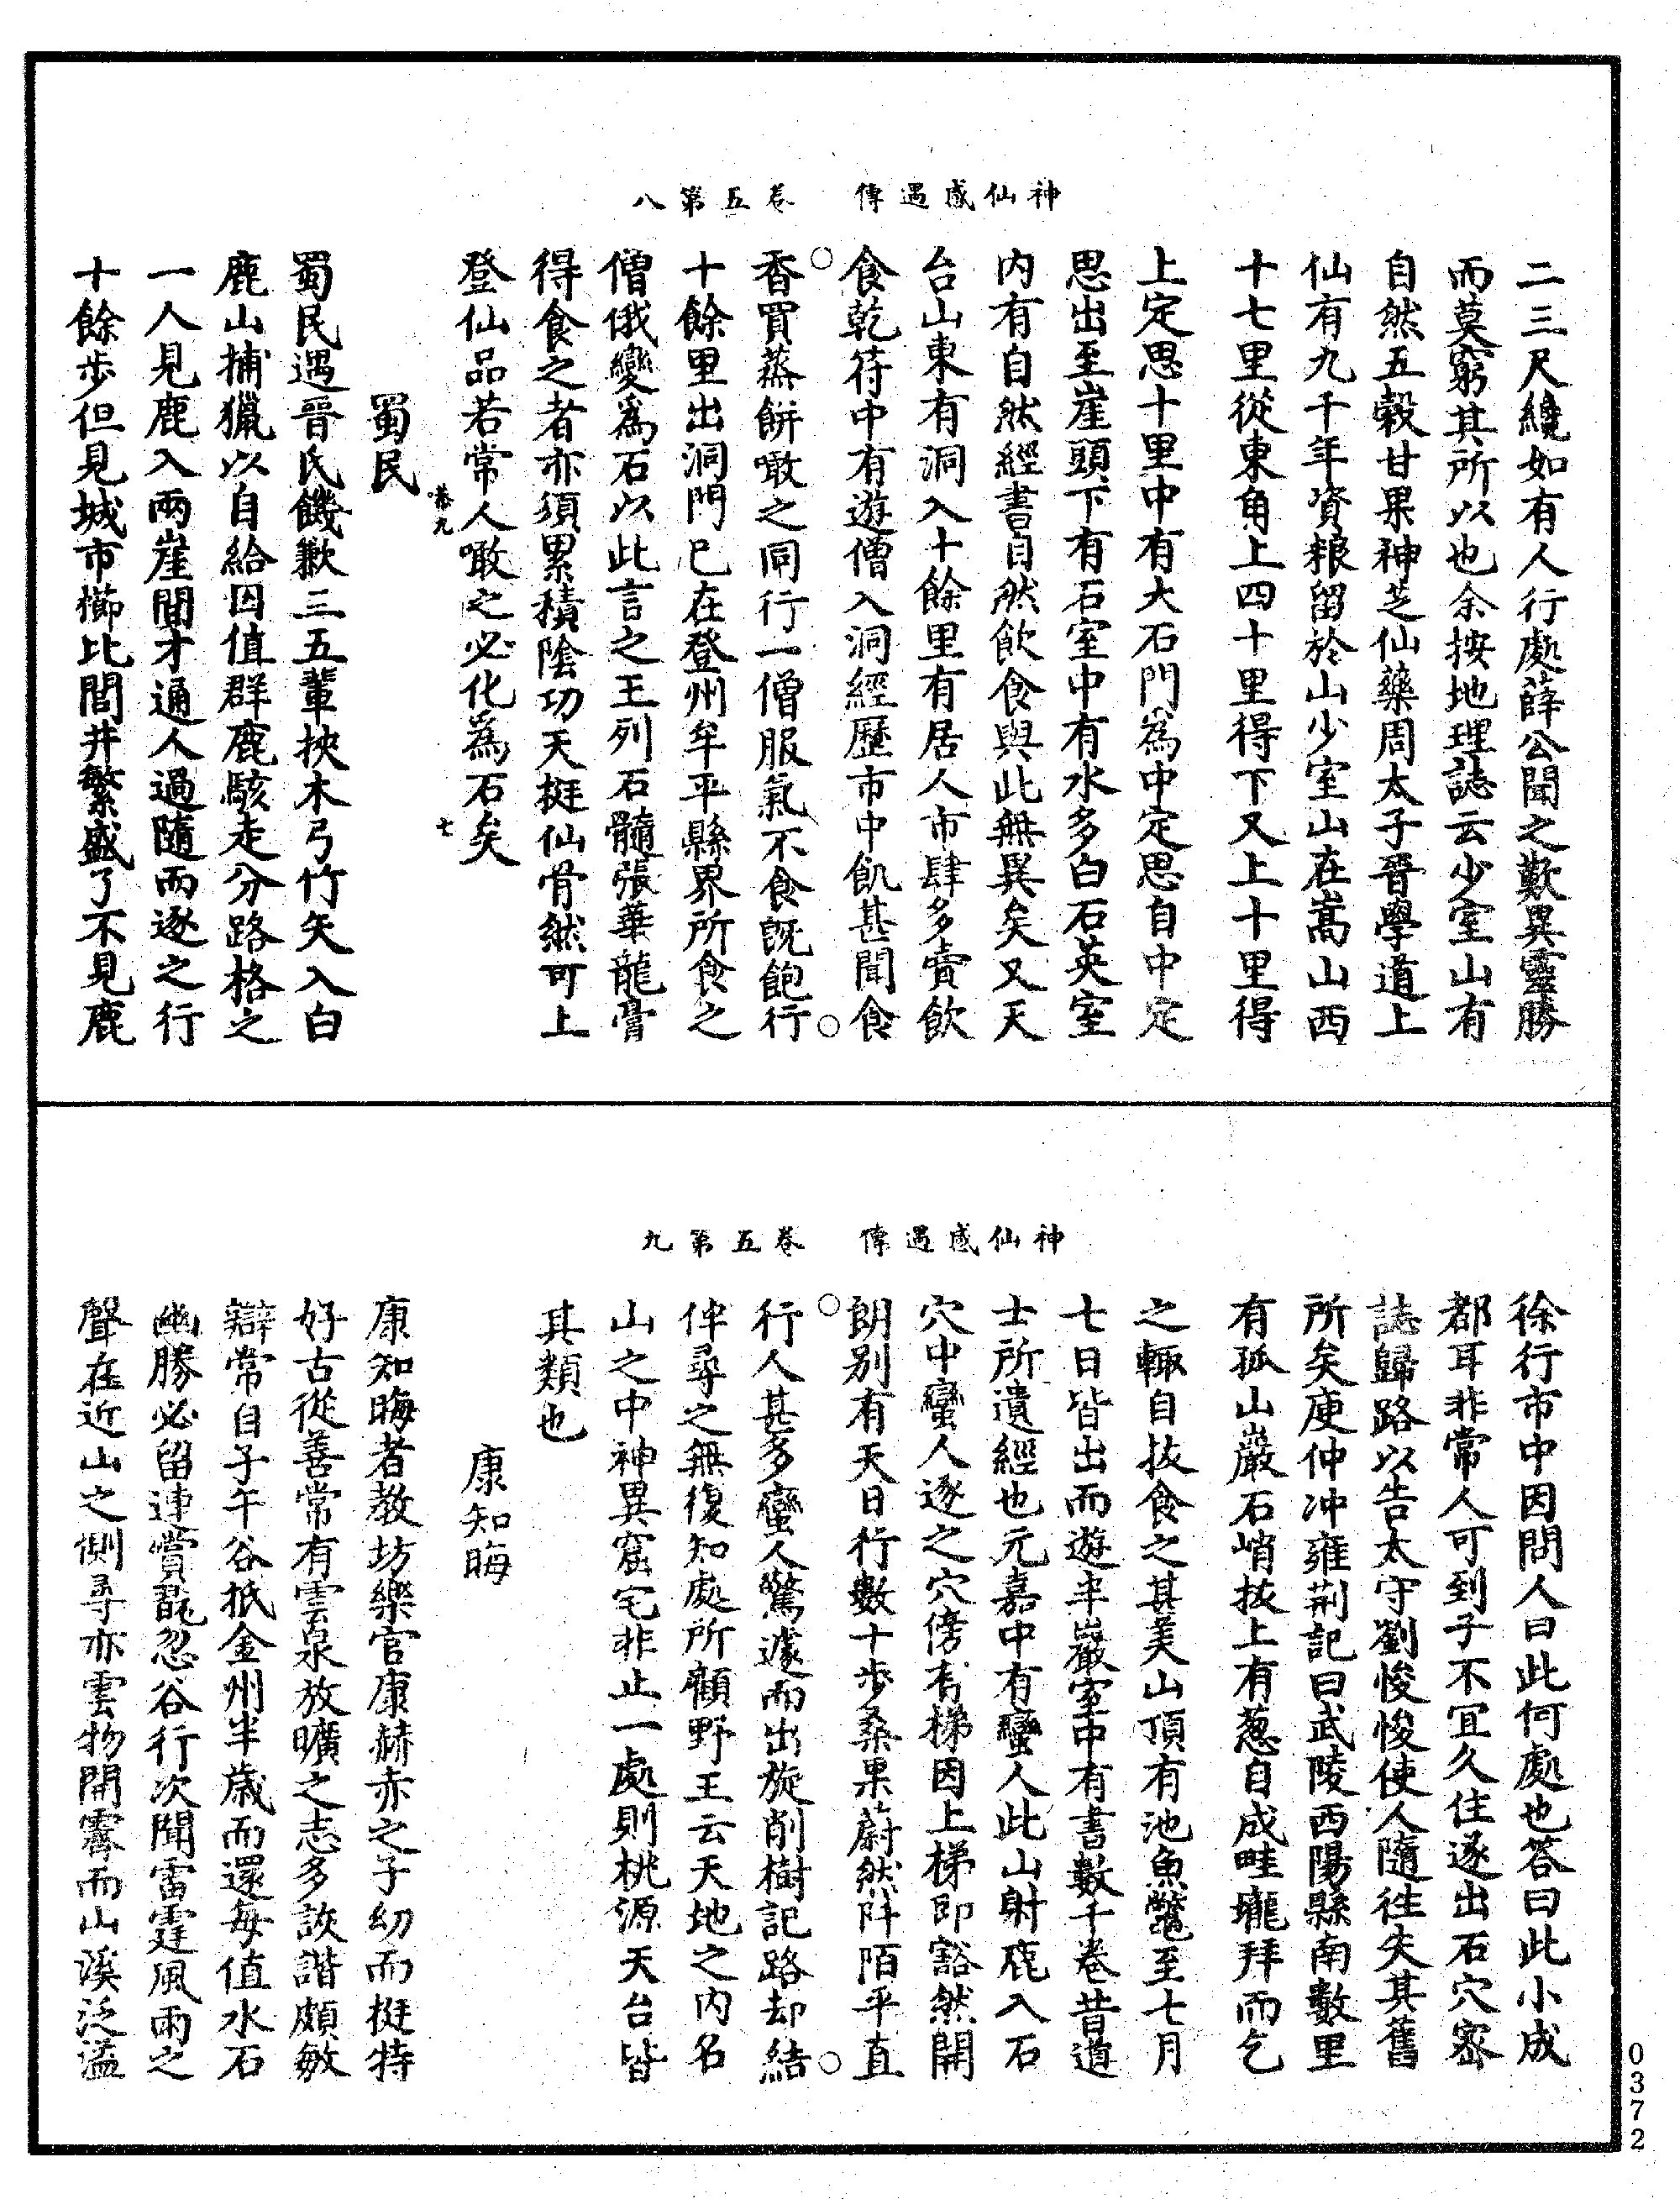 神仙感遇傳　卷五第八
二三尺纔如有人行處薛公聞之歎異靈勝
而莫窮其所以也余按地理誌云少室山有
自然五穀甘果神芝仙藥周太子晉學道上
仙有九千年資粮留於山少室山在嵩山西
十七里從東角上四十里得下又上十里得
上定思十里中有大石門為中定思自中定
思出至崖頭下有石室中有水多白石英室
內有自然經書自然飲食與此無異矣又天
台山東有洞入十餘里有居人市肆多賣飲
食乾符中有遊僧入洞經歷市中飢甚聞食
香買蒸餅噉之同行一僧服氣不食既飽行
十餘里出洞門已在登州牟平縣界所食之
僧俄變為石以此言之王列石髓張華龍膏
得食之者亦須累積陰功天挺仙骨然可上
登仙品若常人噉之必化為石矣
恭九　七
蜀民
蜀民遇晉氏饑歉三五輩挾木弓竹矢入白
鹿山捕獵以自給因值群鹿駭走分路格之
一人見鹿入兩崖間才通人過隨而逐之行
十餘步但見城市櫛比閭井繁盛了不見鹿
神仙感遇傳　卷五第九
徐行市中因問人曰此何處也答曰此小成
都耳非常人可到子不宜久住遂出石穴密
誌歸路以告太守劉悛悛使人隨往失其舊
所矣庾仲冲雍荆記曰武陵西陽縣南數里
有孤山巖石峭拔上有葱自成畦壠拜而乞
之輒自拔食之甚美山頂有池魚鼈至七月
七日皆出而遊半巖室中有書數千卷昔道
士所遺經也元嘉中有蠻人此山射鹿入石
穴中蠻人逐之穴傍有梯因上梯即豁然開
朗别有天日行數十步桑果蔚然阡陌平直
行人甚多蠻人驚遽而出旋削樹記路却結
伴尋之無復知處所顧野王云天地之內名
山之中神異窟宅非止一處則桃源天台皆
其類也
康知晦
康知晦者教坊樂官康赫赤之子幼而挺特
好古從善常有雲泉放曠之志多詼諧頗敏
辯常自子午谷抵金州半歲而還每值水石
幽勝必留連賞翫忽谷行次聞雷霆風雨之
聲在近山之側尋亦雲物開霽而山溪泛溢
0372